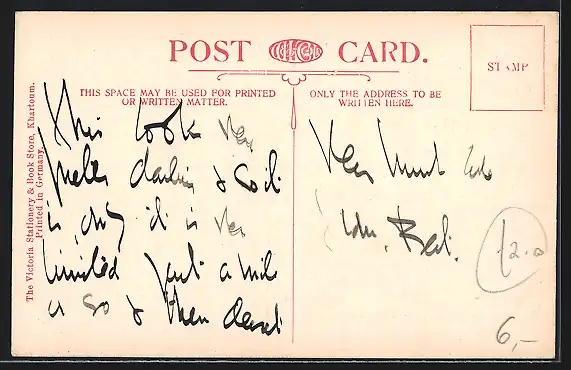 POST CARD.
THIS SPACE MAY BE USED FOR PRINTED
OR WRITTEN MATTER.
ONLY THE ADDRESS TO BE
WRITTEN HERE.
STAMP
The Victoria Stationery & Book Store, Khartoum.
Printed in Germany.
This look very
pretty darling & so it
is, only it is very
limited just a mile
or so & then desert
Very much
12.0
6,-